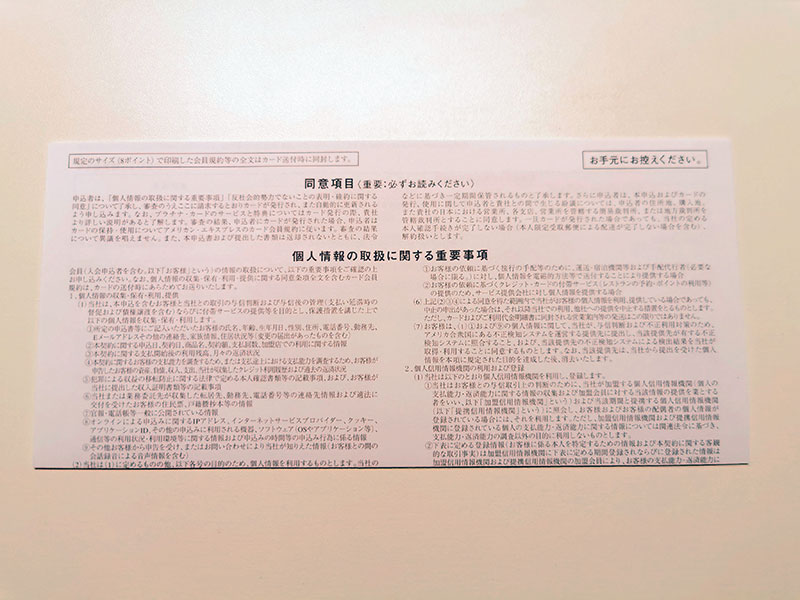 規定のサイズ（8ポイント）で印刷した会員規約等の全文はカード送付時に同封します。
お手元にお控えください。
同意項目（重要：必ずお読みください）
申込者は、「個人情報の取扱に関する重要事項」「反社会的勢力でないことの表明・確約に関する
同意」について了承し、審査のうえここに請求するとおりカードが発行され、また自動的に更新されるよう
申し込みます。なお、プラチナ・カードのサービスと特典についてはカード発行の際、貴社
より詳しい説明があると了解します。審査の結果、申込者にカードが発行された場合、申込者は
カードの保持・使用についてアメリカン・エキスプレスのカード会員規約に従います。審査の結果
について異議を唱えません。また、本申込書および提出した書類は返却されないとともに、法令
などに基づき一定期間保管されるものと了承します。さらに申込者は、本申込およびカードの
発行、使用に関して申込者と貴社との間で生じる訴訟については、申込者の住所地、購入地、
また貴社の日本における営業所、各支店、営業所を管轄する簡易裁判所、または地方裁判所を
管轄裁判所とすることに同意します。一旦カードが発行された場合であっても、当社の定める
本人確認手続きが完了しない場合（本人限定受取郵便による配達が完了しない場合を含む）、
解約扱いとします。
個人情報の取扱に関する重要事項
会員（入会申込者を含む。以下「お客様」という）の情報の取扱について、以下の重要事項をご確認の上
お申し込みください。なお、個人情報の収集・保有・利用・提供に関する同意条項全文を含むカード会員
規約は、カードの送付時にあらためてお送りいたします。
1. 個人情報の収集・保有・利用、提供
(1)当社は、本申込を含むお客様と当社との取引の与信判断および与信後の管理（支払い延滞時の
督促および債権譲渡を含む）ならびに付帯サービスの提供を目的とし、保護措置を講じた上で
以下の個人情報を収集・保有・利用します。
①所定の申込書等にご記入いただいたお客様の氏名、年齢、生年月日、性別、住所、電話番号、勤務先、
Eメールアドレスその他連絡先、家族情報、居住状況等（変更の届出があったものを含む）
②本契約に関する申込日、契約日、商品名、契約額、支払回数、加盟店での利用に関する情報
③本契約に関する支払開始後の利用残高、月々の返済状況
④本契約に関するお客様の支払能力を調査するため、または支払途上における支払能力を調査するため、お客様が
申告したお客様の資産、負債、収入、支出、当社が収集したクレジット利用履歴および過去の返済状況
⑤犯罪による収益の移転防止に関する法律で定める本人確認書類等の記載事項、および、お客様が
当社に提出した収入証明書類等の記載事項
⑥当社または業務委託先が収集した転居先、勤務先、電話番号等の連絡先情報および適法に
交付を受けたお客様の住民票、戸籍謄抄本等の情報
⑦官報・電話帳等一般に公開されている情報
⑧オンラインによる申込みに関するIPアドレス、インターネットサービスプロバイダー、クッキー、
アプリケーションID、その他申込みに利用される機器、ソフトウェア（OSやアプリケーション等）、
通信等の利用状況・利用環境等に関する情報および申込みの時間等の申込み行為に係る情報
⑨その他お客様から申告を受け、またはお問い合わせにより当社が知りえた情報（お客様との間の
会話録音による音声情報を含む）
(2)当社は(1)に定めるものの他、以下各号の目的のため、個人情報を利用するものとします。当社の
①お客様の依頼に基づく旅行の手配等のために、運送・宿泊機関等および手配代行者（必要な
場合に限る。）に対し、情報を電磁的方法等で送付することにより提供する場合
②お客様の依頼に基づくクレジット・カードの付帯サービス（レストランの予約・ポイントの利用等）
の提供のため、サービス提供会社に対し個人情報を提供する場合
中止の申出があった場合は、それ以降当社での利用、他社への提供を中止する措置をとるものとします。
ただし、カードおよびご利用代金明細書に同封される営業案内等の発送はこの限りではありません。
アメリカ合衆国にある不正検知システムを運営する提供先に提出し、当該提供先が有する不正
検知システムに照会すること、および、当該提供先の不正検知システムによる検出結果を当社が
取得・利用することに同意するものとします。なお、当該提供先は、当社から提出を受けた個人
情報を本項に規定された目的を達成した後、消去いたします。
2. 個人信用情報機関の利用および登録
(1)当社は以下のとおり個人信用情報機関を利用し、登録します。
①当社はお客様との与信取引上の判断のために、当社が加盟する個人信用情報機関（個人の
支払能力・返済能力に関する情報の収集および加盟会員に対する当該情報の提供を業とする
者をいい、以下「加盟信用情報機関」という）および当該機関と提携する個人信用情報機関
（以下「提携信用情報機関」という）に照会し、お客様およびお客様の配偶者の個人情報が
登録されている場合には、それを利用します。ただし、加盟信用情報機関および提携信用情報
機関に登録されている個人の支払能力・返済能力に関する情報については関連法令に基づき、
支払能力・返済能力の調査以外の目的に利用しないものとします。
②下表に定める登録情報（お客様に係る本人を特定するための情報および本契約に関する客観
的な取引事実）は加盟信用情報機関に下表に定める期間登録されならびに登録された情報は
加盟信用情報機関および提携信用情報機関の加盟会員により、お客様の支払能力・返済能力に